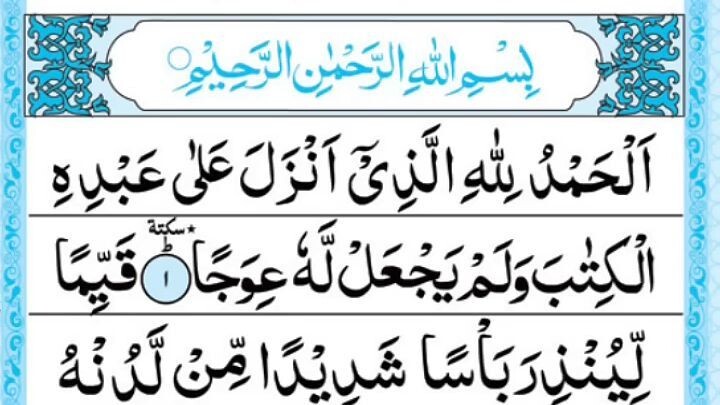 بِسْمِ اللهِ الرَّحْمٰنِ الرَّحِيْمِ
اَلْحَمْدُ لِلّٰهِ الَّذِیْۤ اَنْزَلَ عَلٰى عَبْدِهِ
الْكِتٰبَ وَلَمْ يَجْعَلْ لَّهٗ عِوَجًا ؕ ۱ * سكتة قَيِّمًا
لِّيُنْذِرَ بَاْسًا شَدِيْدًا مِّنْ لَّدُنْهُ